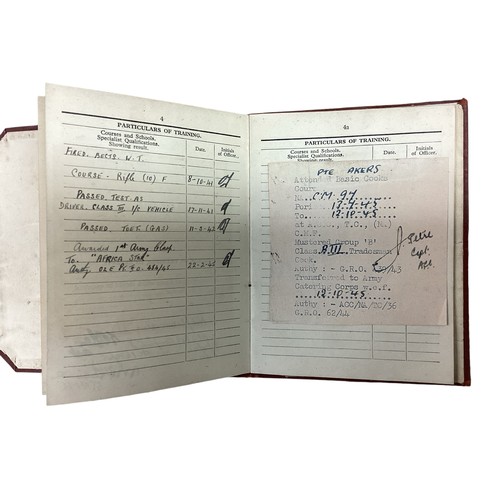 4
PARTICULARS OF TRAINING.
Courses and Schools.
Specialist Qualifications.
Showing result.
Date.
Initials
of Officer.
FIRED. RECTS. W. T.
COURSE - Rifle (10) F 8-10-41
PASSED TEST AS
DRIVER. CLASS III I/C VEHICLE 17-11-41
PASSED, TOET (GAS) 11-3-42
Awarded 1st Army Clasp
To "AFRICA STAR"
22-2-45
4a
PARTICULARS OF TRAINING.
Courses and Schools.
Specialist Qualifications.
Showing result.
Date.
Initials
of Officer.
PTE AKERS
Attended Basic Cooks
Course
No. C.M. 97
Peri
To 12.10.45
at A...., T.C., (No.)
C.M.F.
Mustered Group 'B'
Class AIII Tradesmen
Cook
Authy :- G.R.O. /43
Capt.
Transferred to Army
Catering Corps w.e.f.
12-10-45
Authy :- ACC/MA/TC/36
G.R.O. 62/44